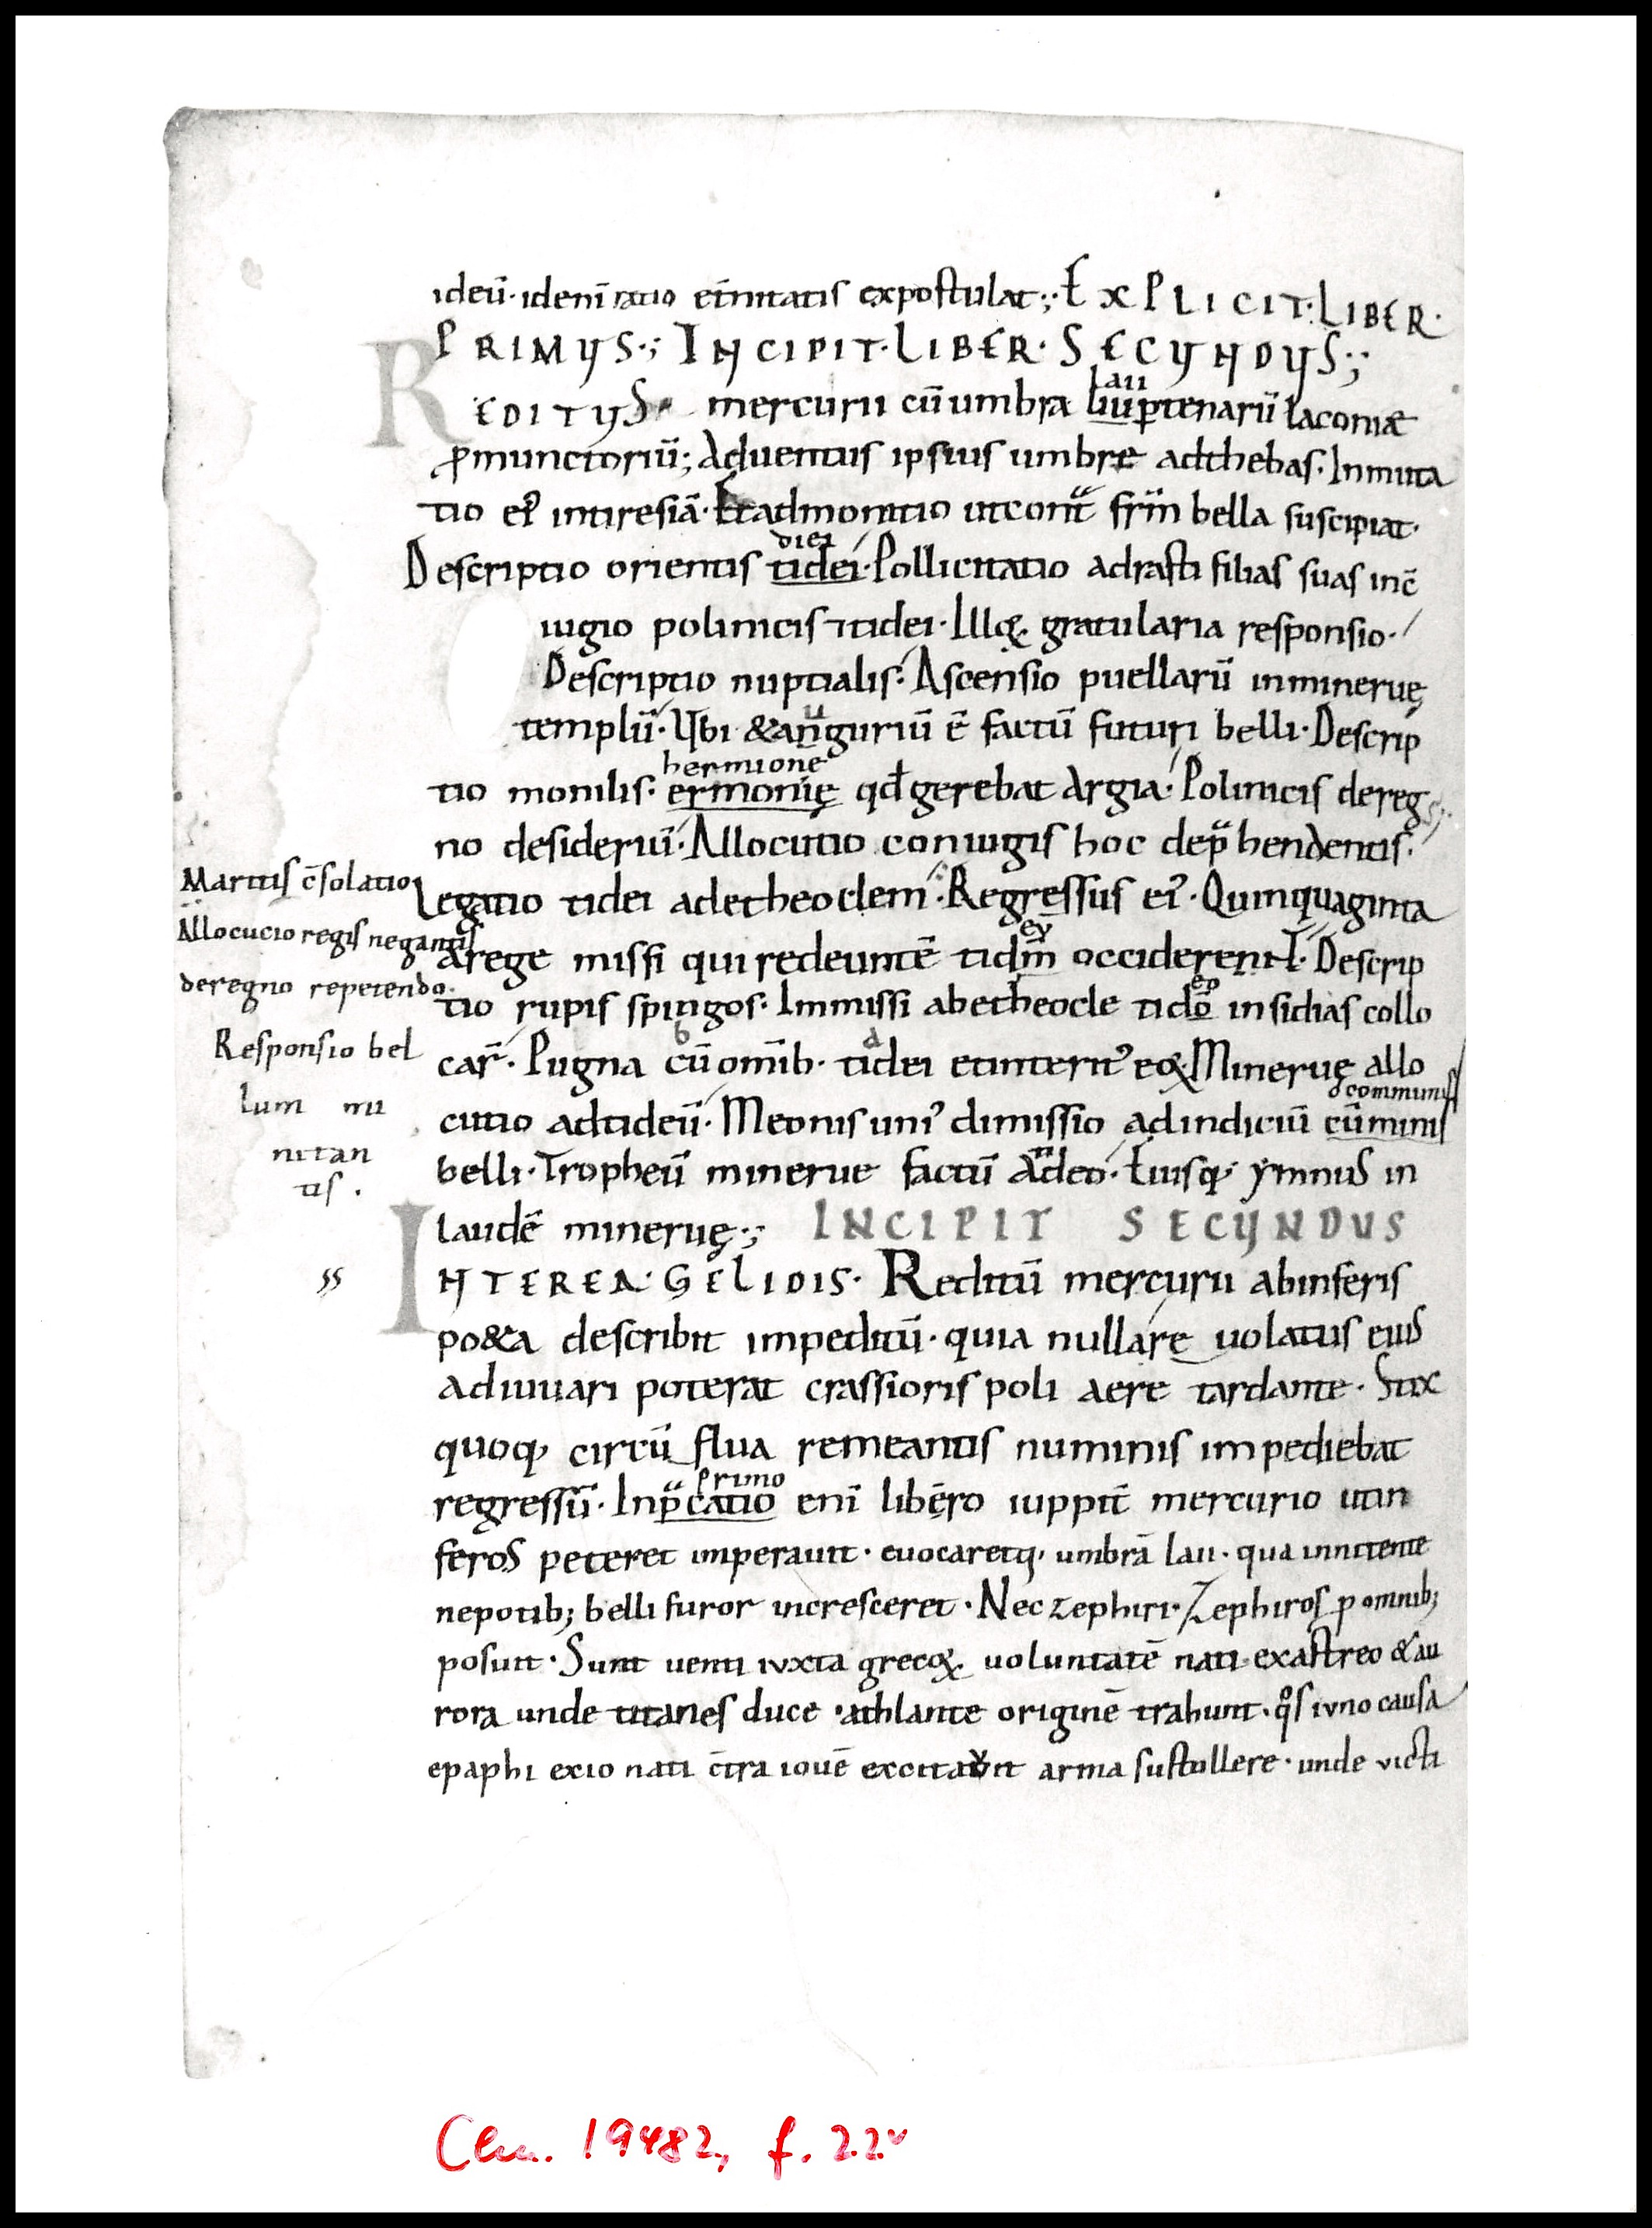 ideū· idenī ratio et̄nitatis expostulat·; EXPLICIT· LIBER·
PRIMUS·; INCIPIT· LIBER· SECUNDUS·;
lau
REDITUS mercurii cū umbra liu p̱ tenarū laconiæ
p̱muncioriū; Aduentus ipsius umbre ad thebas· Inmuta
tio ei᾽ in tiresiā· Et admonitio ut contᷓ fr̄m bella suscipiat·
diei
Descriptio orientis tidei· Pollicitatio adrasti filias suas in c̄
iugio polinicis ⁊ tidei· Illoꝝ gratularia responsio·
Descriptio nuptialis· Ascensio puellarū in mineruę
u
templū· Ubi & anguriū ē factū futuri belli· Descrip
hermione
tio monilis· ermonię qd̄ gerebat Argia· Polinicis de reg
no desideriū· Allocutio coniugis hoc depᷓhendentis·
Maritis c̄solatio
Legatio tidei ad etheoclem· Regressus ei᾽· Quinquaginta
Allocucio regis negantis
ey
a rege missi qui redeuntē tidm̄ occiderent· Descrip
de regno repetendo·
eo
tio rupis spingos· Immissi ab etheocle tidō insidias collo
Responsio bel
b d
car̄· Pugna cū om̄ib· tidei et interit᾽ eoꝝ Mineruę allo
lum mi
communis
cutio ad tideū· Meonis uni᾽ dimissio ad indiciū cūminis
nitan
belli· Tropheū minerue factū a deo· Eiusq· ymnus in
tis·
laudē mineruę·; INCIPIT SECUNDUS
INTEREA· GELIDIS· Reditū mercurii ab inferis
po&a describit impeditū· quia nulla re uolatus eius
adiuuari poterat crassioris poli aere tardante· Stix
quoq· circū flua remeantis numinis impediebat
primo
regressū· In pᷓcatio enī libęro iuppit̄ mercurio ut in
feros peteret imperauit· euocaretq· umbrā laii· qua innitente
nepotib; belli furor incresceret· Nec zephiri· Zephiros p̱ omnib;
posuit· Sunt uenti iuxta grecoꝝ uoluntatē nati ex astreo & au
rora unde titanes duce athlante originē trahunt· qͦs iuno causa
epaphi ex io nati c̄tra iouē excitavit arma sustollere· unde victi
Clm. 19482, f. 22v